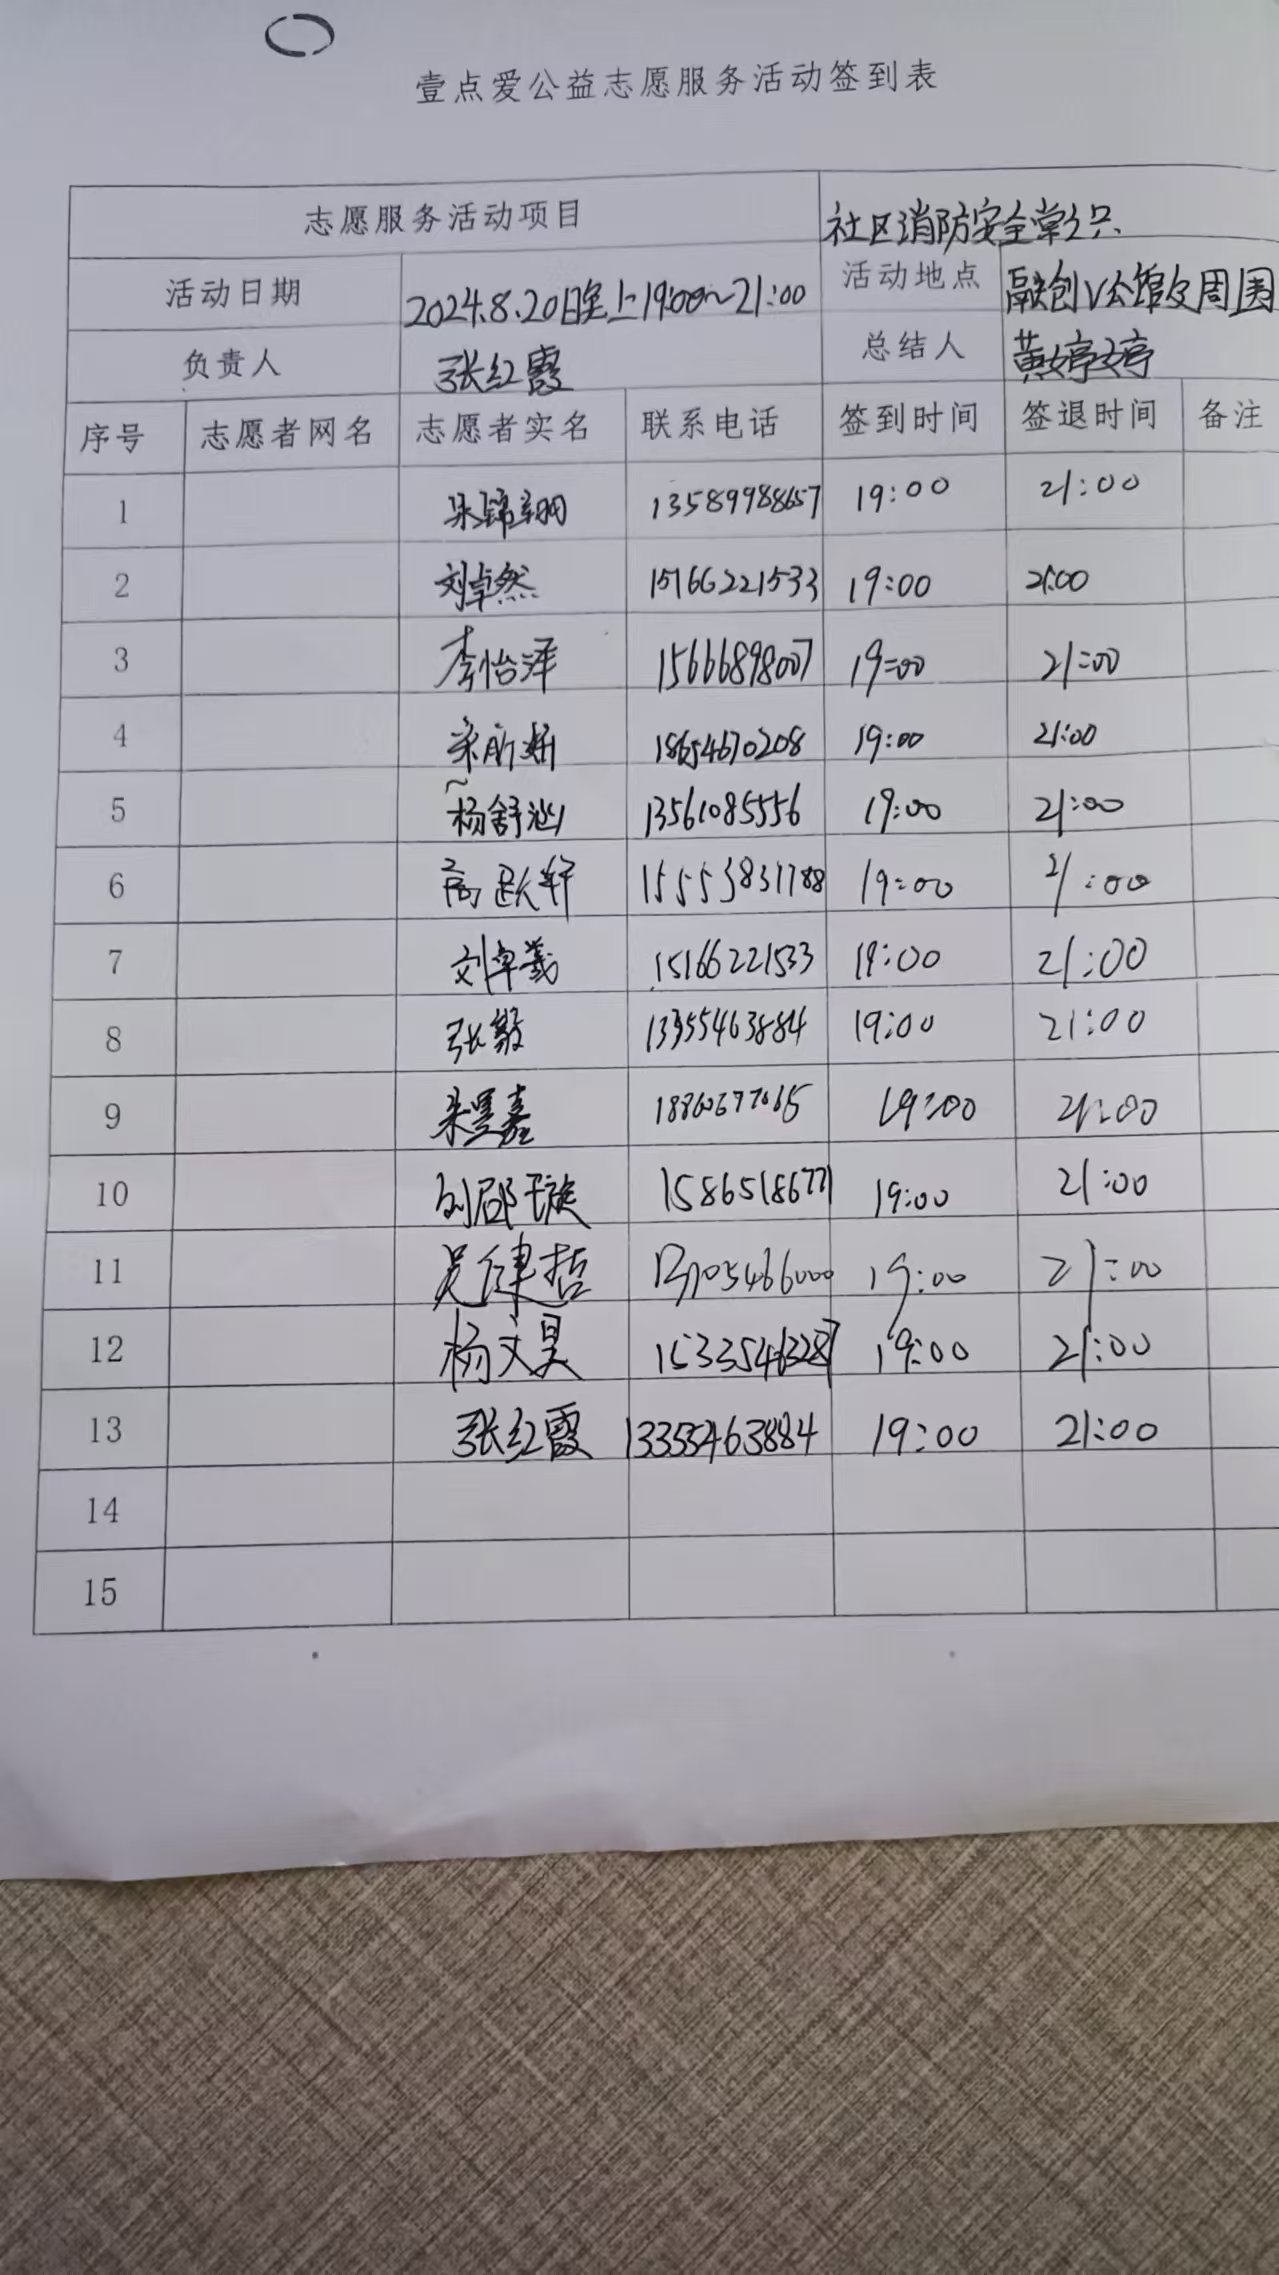 壹点爱公益志愿服务活动签到表
志愿服务活动项目 社区消防安全常识
活动日期 2024.8.20日晚上19:00~21:00 活动地点 融创V公馆及周围
负责人 张红霞 总结人 黄婷婷
序号 志愿者网名 志愿者实名 联系电话 签到时间 签退时间 备注
1 13589988657 19:00 21:00
2 刘卓然 15166221533 19:00 21:00
3 李怡泽 15666898007 19:00 21:00
4 18654670208 19:00 21:00
5 杨舒涵 13561085556 19:00 21:00
6 高跃轩 15553831788 19:00 21:00
7 刘卓羲 15166221533 19:00 21:00
8 张毅 13355463884 19:00 21:00
9 19:00 21:00
10 15865186771 19:00 21:00
11 吴健哲 19:00 21:00
12 杨文昊 15335463287 19:00 21:00
13 张红霞 13355463884 19:00 21:00
14
15